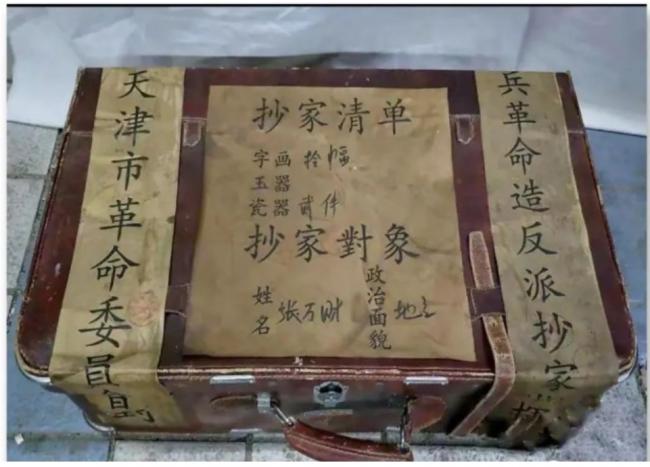 天津市革命委員
抄家清单
字画 拾幅
玉器
瓷器 贰件
抄家對象
姓名 张万财
政治面貌 地主
兵革命造反派抄家